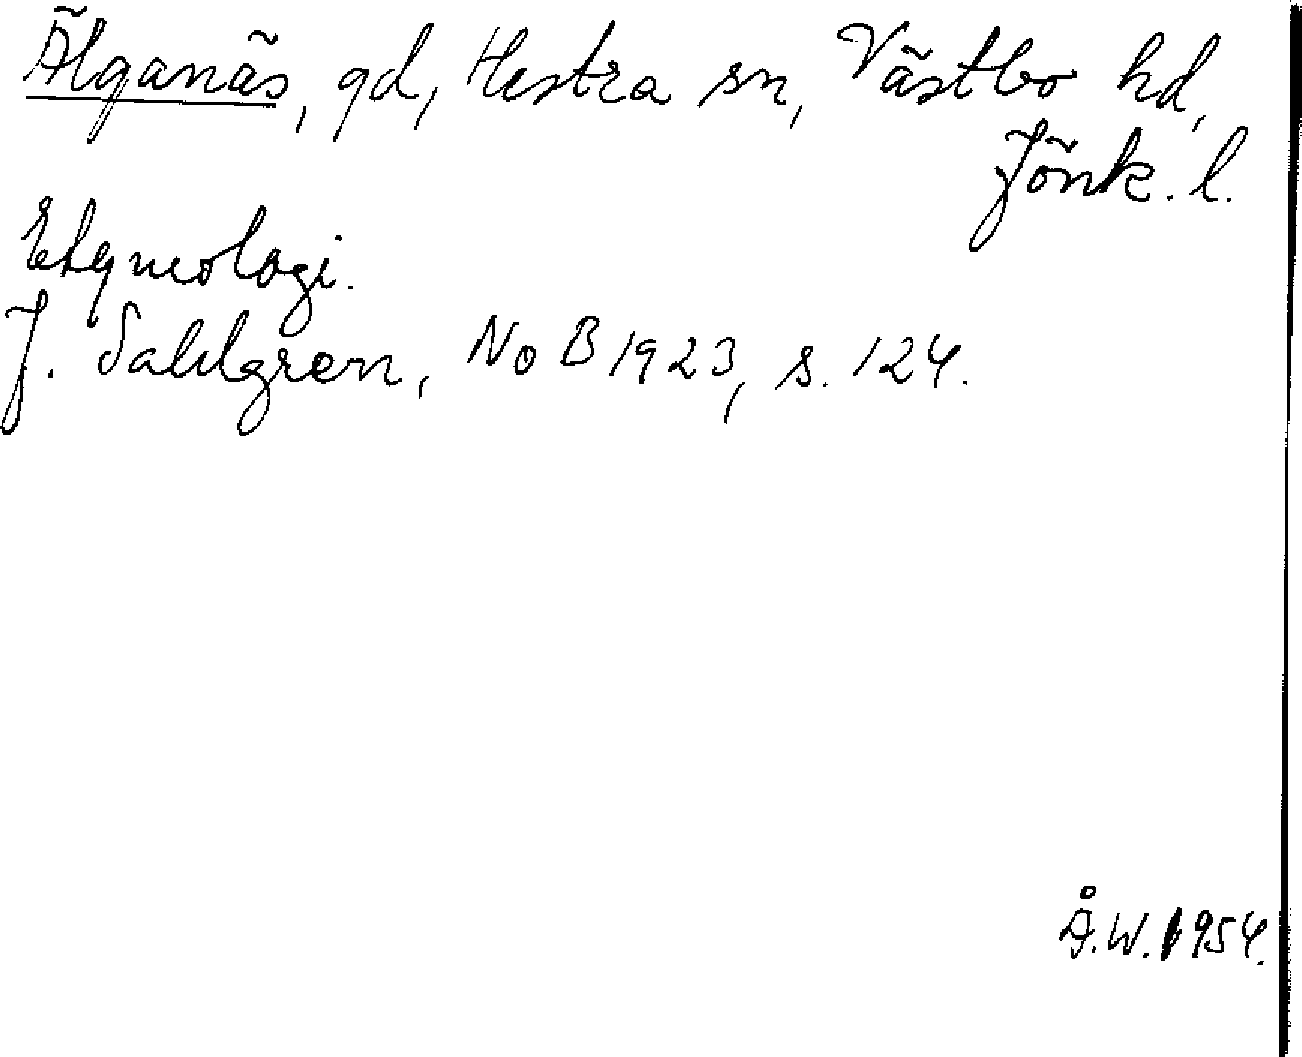 Älganäs, gd, Hestra sn, Västbo hd,
Jönk. l.
Etymologi.
J. Sahlgren, NoB 1923, s. 124.
Å.W. 1954.